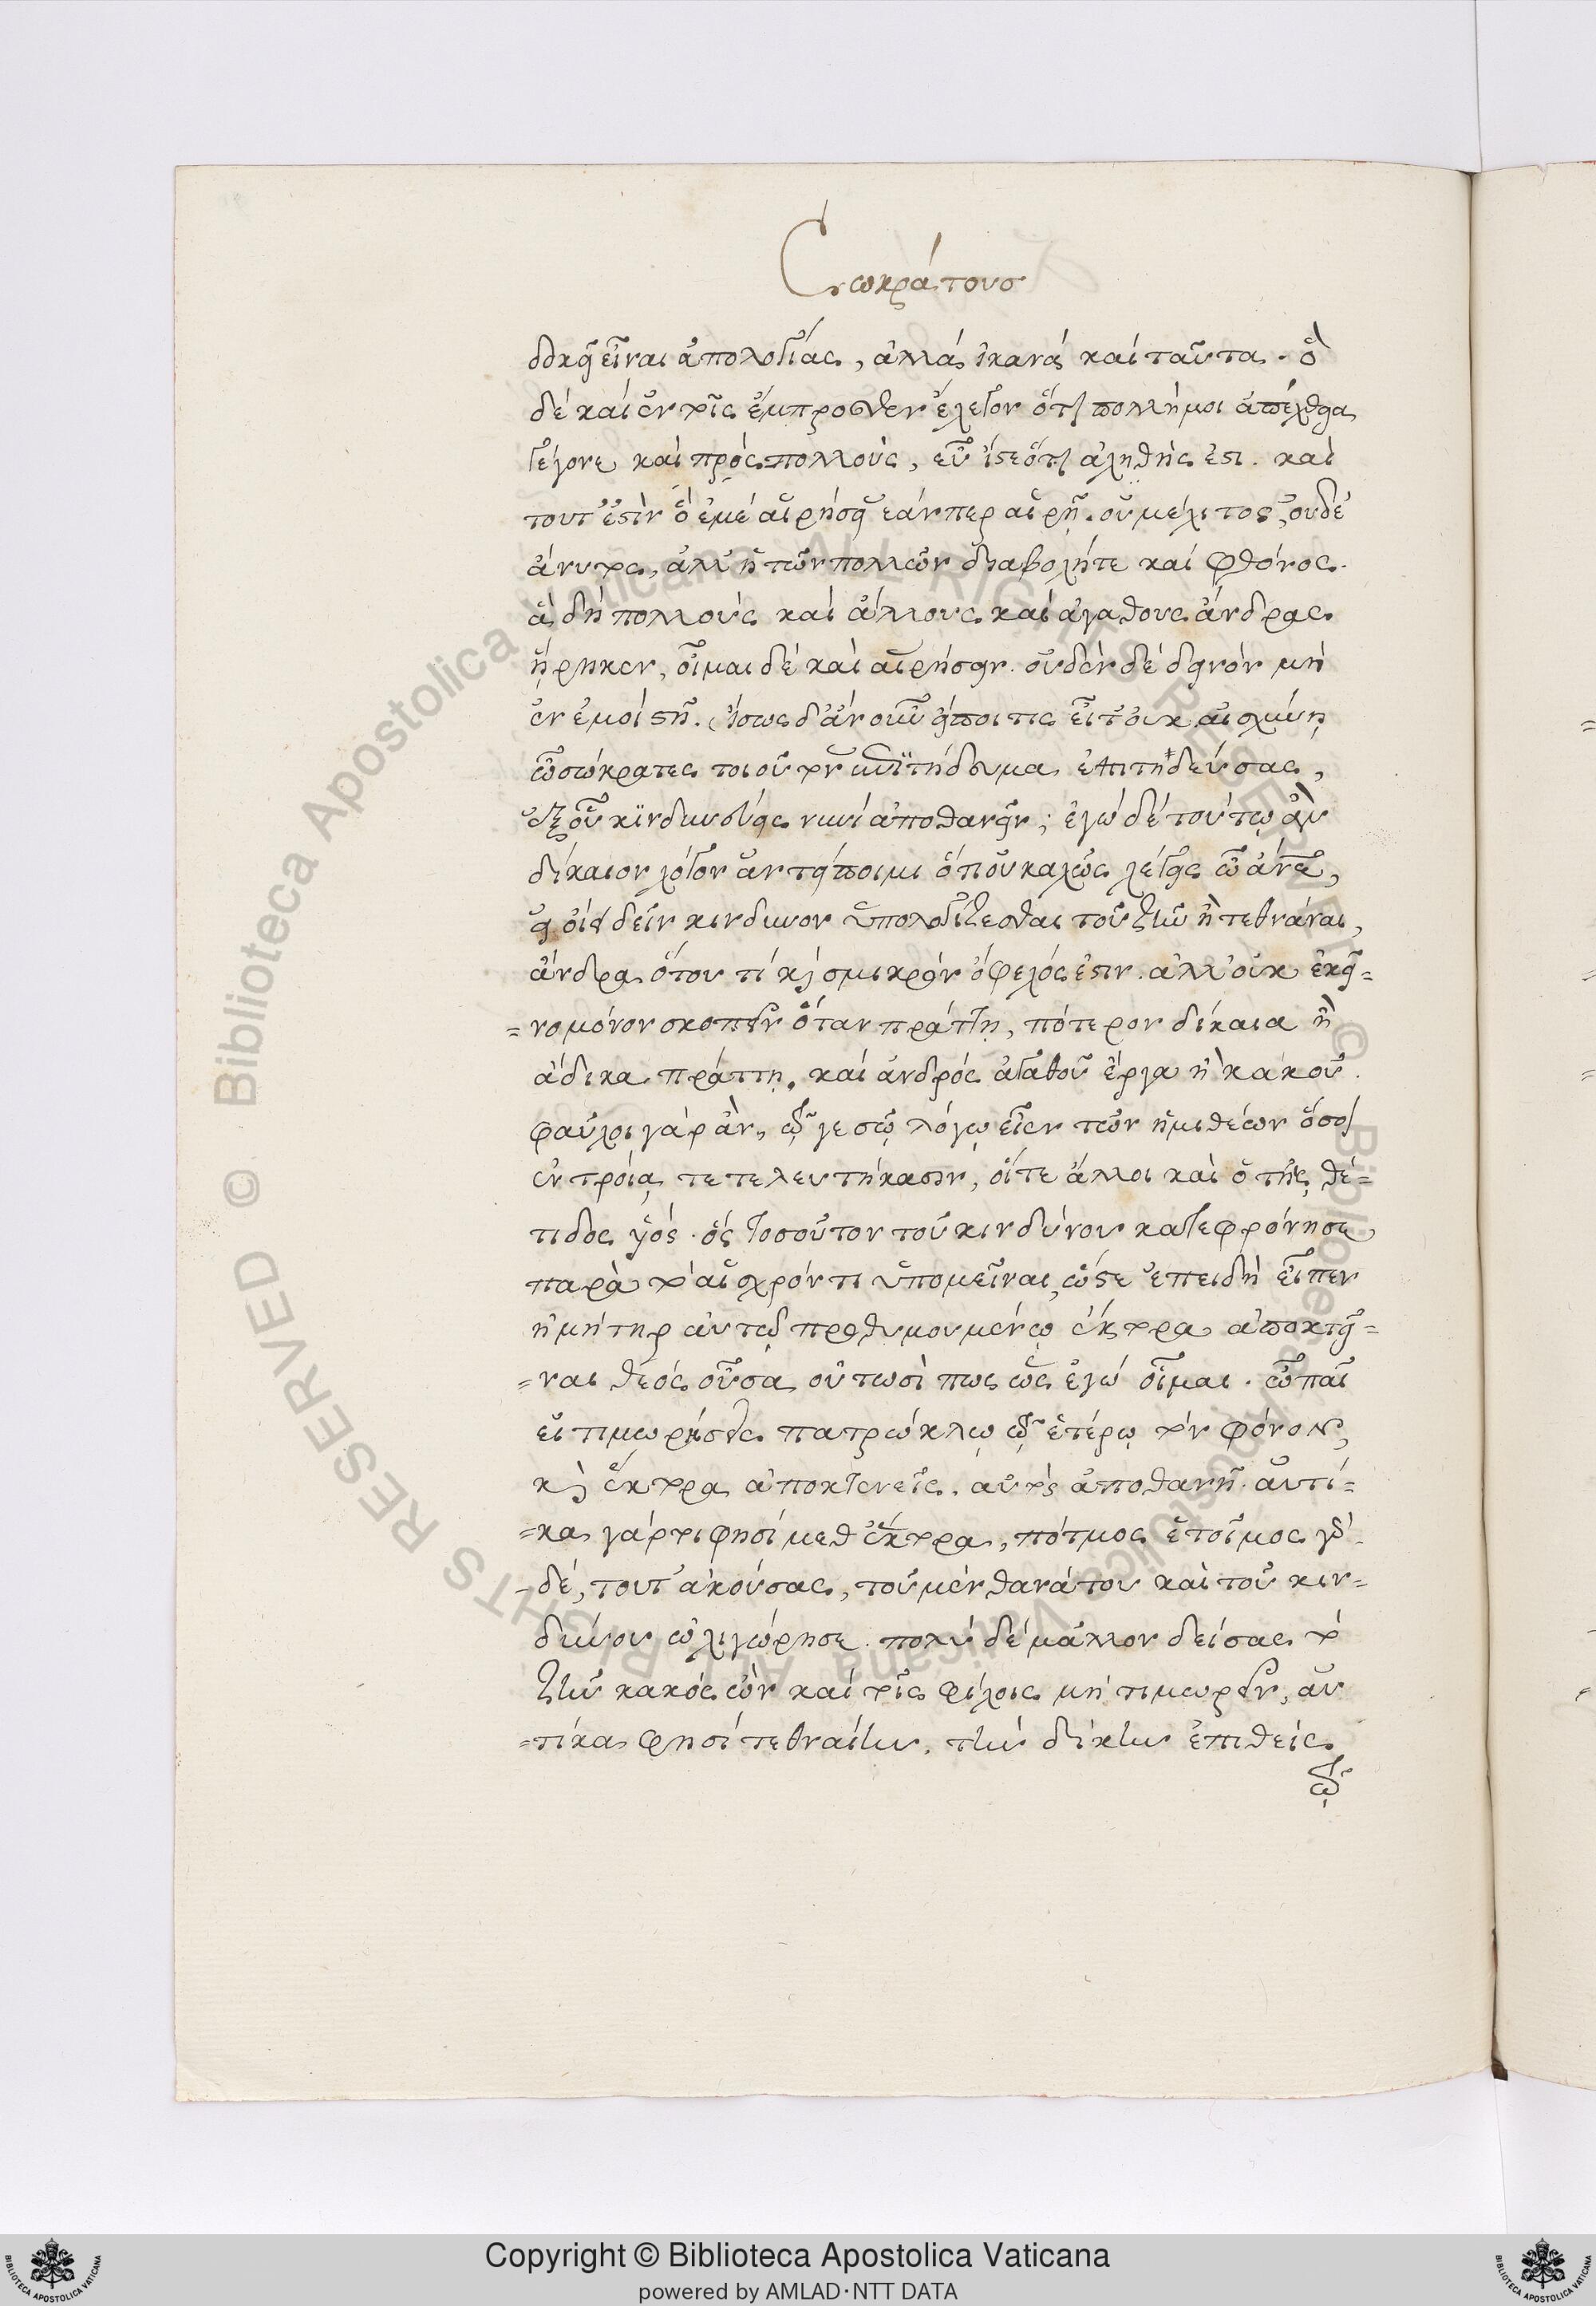 Σωκράτους
δοκεῖ εἶναι ἀπολογίας, ἀλλὰ ἱκανὰ καὶ ταῦτα. ὃ
δὲ καὶ ἐν τοῖς ἔμπροσθεν ἔλεγον ὅτι πολλή μοι ἀπέχθεια
γέγονε καὶ πρὸς πολλοὺς, εὖ ἴστε ὅτι ἀληθὴς ἐστι. καὶ
τουτ' ἐστὶν ὃ ἐμὲ αἱρήσει ἐάνπερ αἱρῇ. οὐ μέλιτος, οὐδὲ
ἄνυτος, ἀλλ' ἡ τῶν πολλῶν διαβολή τε καὶ φθόνος.
ἃ δὴ πολλοὺς καὶ ἄλλους καὶ ἀγαθους ἄνδρας
ᾕρηκεν, οἶμαι δὲ καὶ αἱρήσειν. οὐδὲν δὲ δεινὸν μὴ
ἐν ἐμοὶ στῇ. ἴσως δ' ἂν οὖν εἴποι τις εἶτ' οὐκ αἰσχύνῃ
ὦ σώκρατες τοιοῦτον ἐπιτήδευμα ἐπιτηδεύσας,
ἐξ οὗ κινδυνεύεις νυνὶ ἀποθανεῖν; ἐγὼ δὲ τούτῳ ἂν
δίκαιον λόγον ἀντείποιμι ὅτι οὐ καλῶς λέγεις ὦ ἄνε,
εἰ οἴει δεῖν κινδυνον ὑπολογίζεσθαι τοῦ ζῆν ἢ τεθνάναι,
ἄνδρα ὅτου τί καὶ σμικρὸν ὄφελός ἐστιν. ἀλλ' οὐκ ἐκεῖ=
=νο μόνον σκοπεῖν ὅταν πράττῃ, πότερον δίκαια ἢ
ἄδικα πράττῃ. καὶ ἀνδρὸς ἀγαθοῦ ἔργα ἢ κακοῦ.
φαῦλοι γὰρ ἂν, τῷ γε σῷ λόγῳ εἶεν τῶν ἡμιθέων ὅσοι
ἐν τροίᾳ τετελευτήκασιν, οἵτε ἄλλοι καὶ ὁ τῆς θέ=
τιδος υἱός. ὃς τοσοῦτον τοῦ κινδύνου κατεφρόνησε
παρὰ τὸ αἰσχρόν τι ὑπομεῖναι, ὥστε ἐπειδὴ εἶπεν
ἡ μήτηρ αὐτῷ προθυμουμένῳ ἕκτορα ἀποκτεῖ=
=ναι θεὸς οὖσα οὑτωσί πως ὡς ἐγὼ οἶμαι. ὦ παῖ
εἰ τιμωρήσεις πατρόκλῳ τῷ ἑτέρῳ τὸν φόνον,
καὶ ἕκτορα ἀποκτενεῖς. αὐτὸς ἀποθανῇ. αὐτί=
=κα γάρ τοι φησὶ μεθ' ἕκτορα, πότμος ἑτοῖμος ὁ
-δὲ, τουτ' ἀκούσας, τοῦ μὲν θανάτου καὶ τοῦ κιν=
δύνου ὠλιγώρησε. πολὺ δὲ μᾶλλον δείσας τὸ
ζῆν κακὸς ὢν καὶ τοῖς φίλοις μὴ τιμωρεῖν, αὐ
=τίκα φησὶ τεθναίην. τὴν δίκην ἐπιθεὶς
τῷ
Copyright © Biblioteca Apostolica Vaticana
powered by AMLAD·NTT DATA